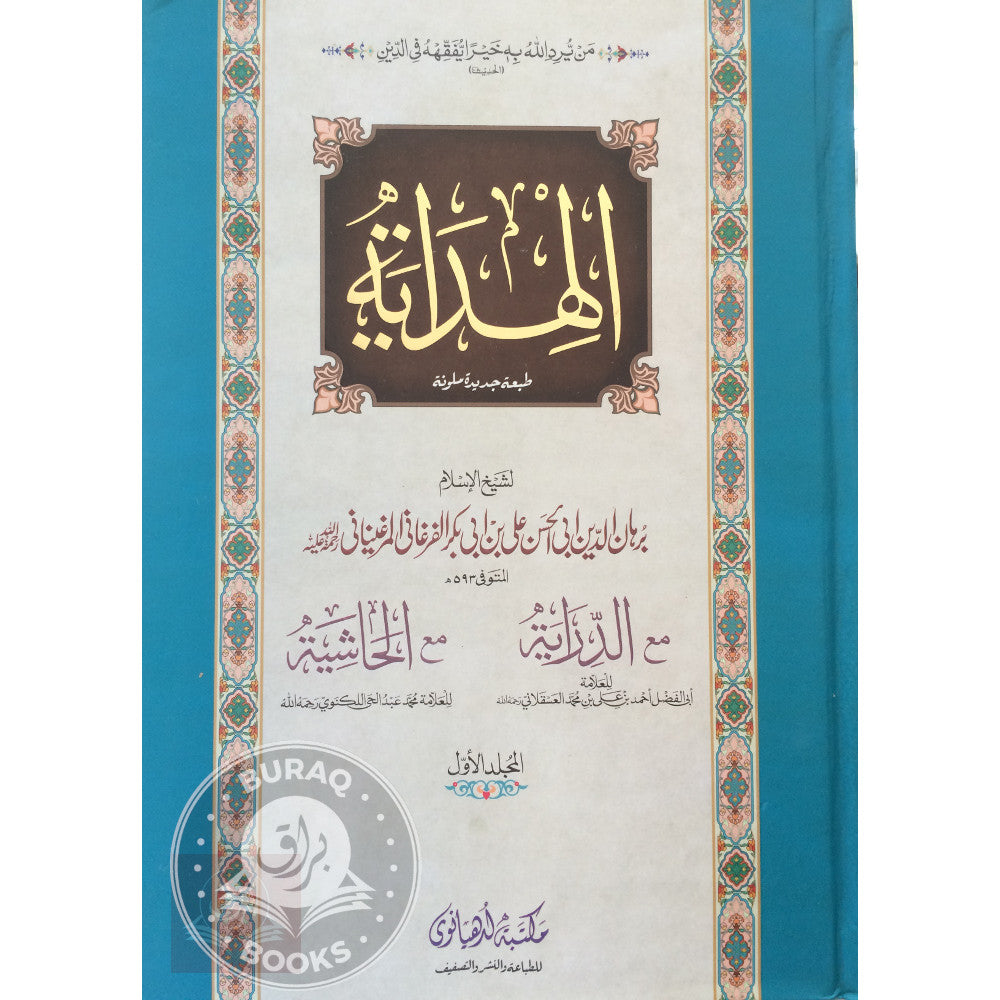 مَنْ يُّرِدِ اللهُ بِهٖ خَيْرًا يُّفَقِّهْهُ فِي الدِّيْنِ
(الحديث)
الهِدَايَةُ
طبعة جديدة ملونة
لشيخ الإسلام
برهان الدين ابي الحسن علي بن ابي بكر الفرغاني المرغيناني رحمة الله عليه
المتوفى ٥٩٣ ه
مع الدِّرَايَةُ
مع الحَاشِيَةُ
للعلامة
أبي الفضل أحمد بن علي بن محمد العسقلاني رحمه الله
للعلامة محمد عبد الحي اللكنوي رحمه الله
المُجلد الأوّل
مكتبة لدهيانوى
للطباعة والنشر والتصفيف
BURAQ
براق
BOOKS